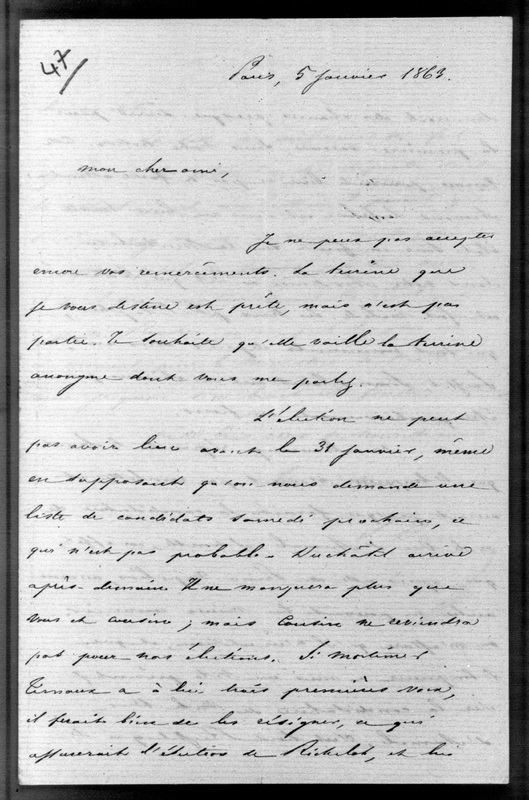 47
Paris, 5 Janvier 1863.
mon cher ami,
Je ne peux pas accepter
encore vos remerciements. La terrine que
je vous destine est prête, mais n'est pas
partie. Je souhaite qu'elle vaille la terrine
anonyme dont vous me parlez.
L'élection ne peut
pas avoir lieu avant le 31 Janvier, même
en supposant qu'on nous demande une
liste de candidats samedi prochain, ce
qui n'est pas probable. Duchâtel arrive
après-demain. Il ne manquera plus que
vous et Cousin ; mais Cousin ne reviendra
pas pour nos élections. Si mortimer
Ternaux a à lui trois premières voix,
il ferait bien de les résigner, ce qui
assurerait l'élection de Richelot, et lui